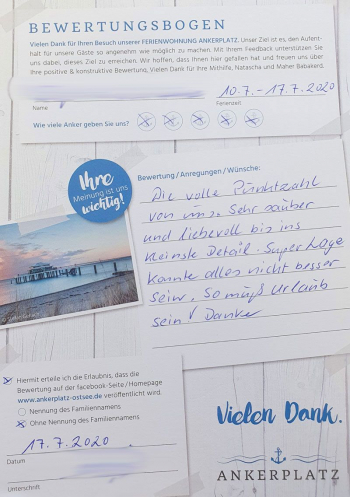 BEWERTUNGSBOGEN
Vielen Dank für Ihren Besuch unserer FERIENWOHNUNG ANKERPLATZ. Unser Ziel ist es, den Aufent-
halt für unsere Gäste so angenehm wie möglich zu machen. Mit Ihrem Feedback unterstützen Sie
uns dabei, dieses Ziel zu erreichen. Wir hoffen, dass Ihnen hier gefallen hat und freuen uns über
Ihre positive & konstruktive Bewertung, Vielen Dank für Ihre Mithilfe, Natascha und Maher Babakerd.
10.7. - 17.7.2020
Name
Ferienzeit
Wie viele Anker geben Sie uns?
Ihre
Meinung ist uns
wichtig!
Bewertung / Anregungen / Wünsche:
Die volle Punktzahl
von uns. Sehr sauber
und liebevoll bis ins
kleinste Detail. Super Lage
konnte alles nicht besser
sein. So muß Urlaub
sein! Danke
Hiermit erteile ich die Erlaubnis, dass die
Bewertung auf der facebook-Seite / Homepage
www.ankerplatz-ostsee.de veröffentlicht wird.
Nennung des Familiennamens
Ohne Nennung des Familiennamens
17.7.2020
Datum
Unterschrift
Vielen Dank.
ANKERPLATZ